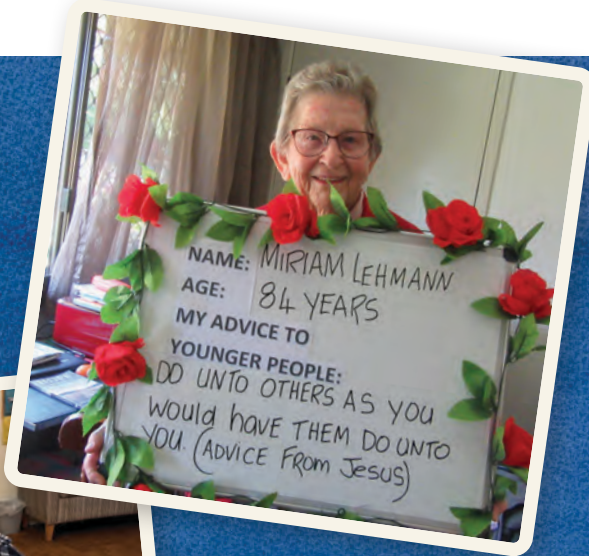 NAME: MIRIAM LEHMANN
AGE: 84 YEARS
MY ADVICE TO
YOUNGER PEOPLE:
DO UNTO OTHERS AS YOU
WOULD HAVE THEM DO UNTO
YOU. (ADVICE FROM JESUS)